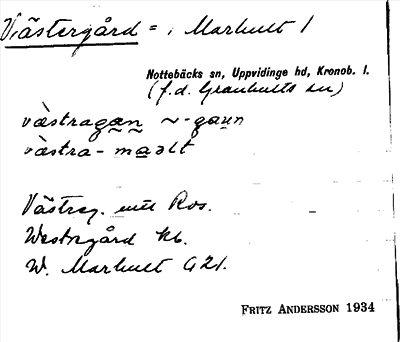 Västergård = i Marhult 1
Nottebäcks sn, Uppvidinge hd, Kronob. l.
(f.d. Granhults sn)
västragan ~-gaun
västra-maalt
Västerg. Ros.
Westergård kb.
W. Marhult G21.
FRITZ ANDERSSON 1934